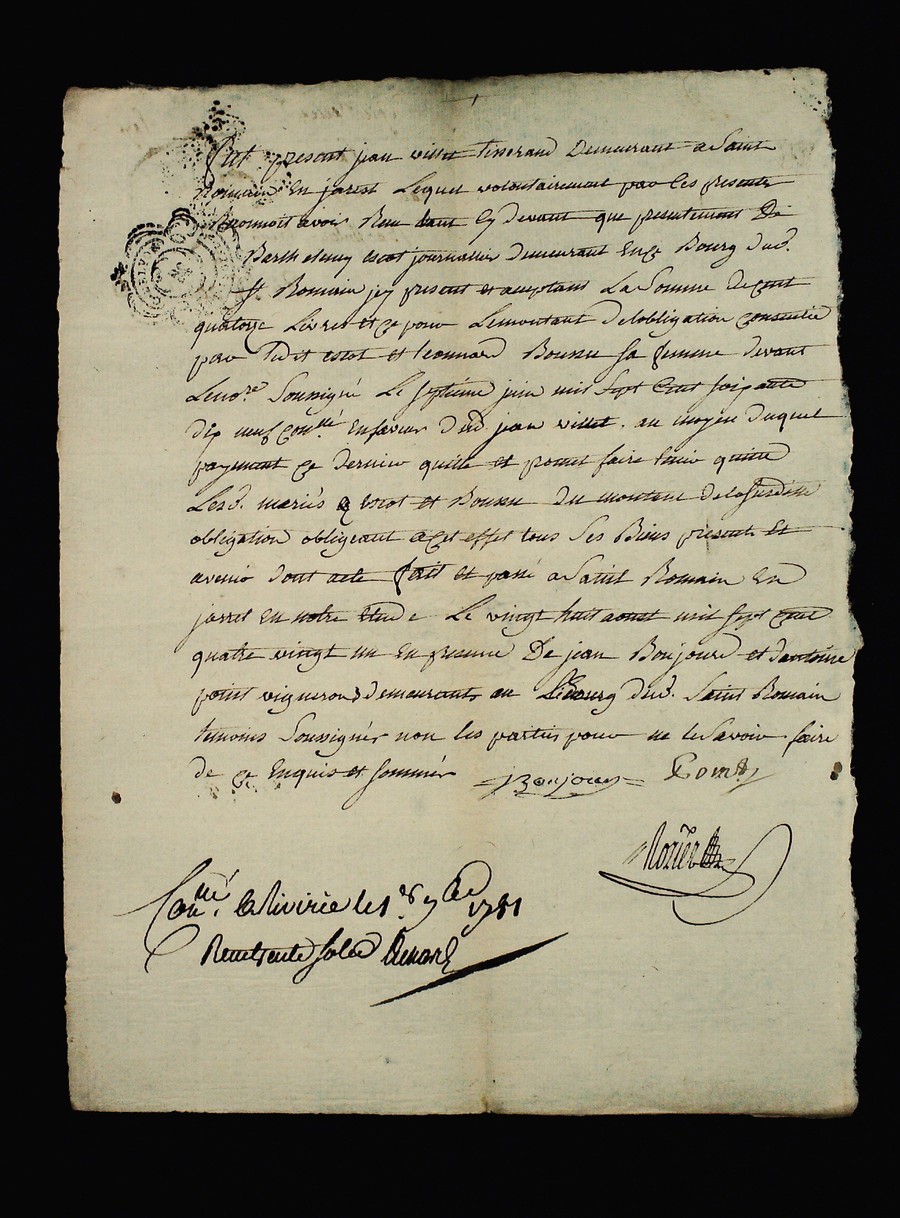 fut present jean villet tisserand Demeurant a Saint
Romain En jarest Lequel volontairement par Ces presentes
Reconnoit avoir Recu tant Cy devant que presentement De
Barthelemy escot journallier demeurant En Ce Bourg dud.
St Romain jcy present et acceptant La Somme de Cent
quatorze Livres et Ce pour Lemontant delobligation Consentie
par Ledit escot et Leonnard Bonnu Sa femme devant
Leno.re Soussigné Le Septieme juin mil Sept Cent Soixante
dix neuf Con.llé En faveur dud. jean villet. au moyen duquel
payement Ce dernier quitte et promet faire tenir quitte
Lesd. mariés escot et Bonnu du montant de laSusditte
obligation obligeant a Cet effet tous Ses Biens presents Et
avenir dont acte fait et passé a Saint Romain En
jarret En notre Etude Le vingt huit aoust mil Sept Cent
quatre vingt un En presence De jean Bonjour et dantoine
point vignerons demeurants au Bourg dud. Saint Romain
temoins Soussignés non les parties pour ne le Savoir faire
de Ce Enquis et Sommés
Bonjour Point
Con.llé a Rivirie le 1.er 7bre 1781
Recu trente Sols